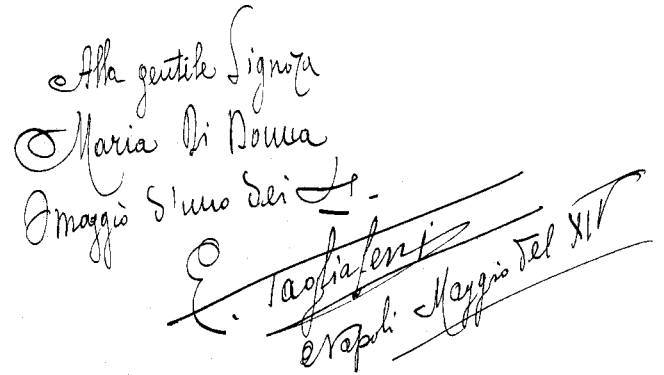 Alla gentile Signora
Maria Di Donna
Omaggio d'uno dei
E. Tagliaferri
Napoli Maggio del XIV